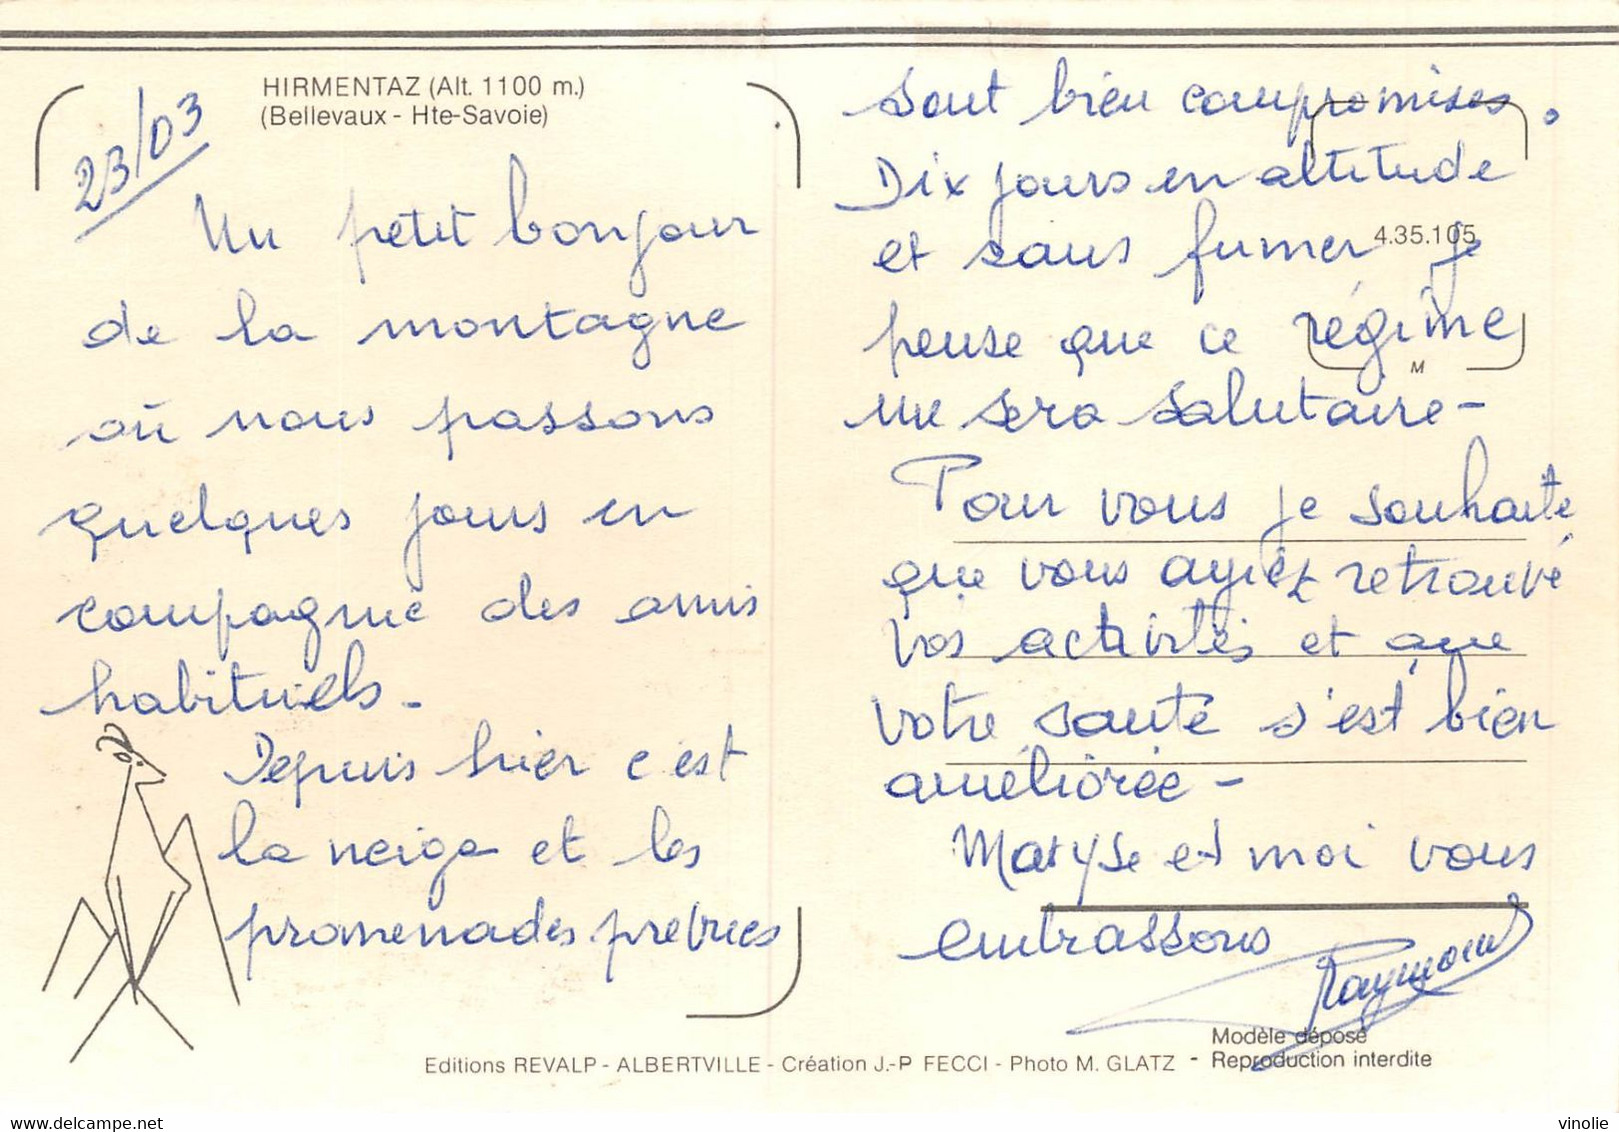 HIRMENTAZ (Alt. 1100 m.)
(Bellevaux - Hte-Savoie)
23/03
Un petit bonjour
de la montagne
où nous passons
quelques jours en
compagnie des amis
habituels -
Depuis hier c'est
la neige et les
promenades prévues
sont bien compromises.
Dix jours en altitude
et sans fumer je
4.35.105
pense que ce régime
M
me sera salutaire -
Pour vous je souhaite
que vous ayiez retrouvé
vos activités et que
votre santé s'est bien
améliorée -
Maryse et moi vous
embrassons
Raymond
Modèle déposé
Editions REVALP - ALBERTVILLE - Création J.-P FECCI - Photo M. GLATZ - Reproduction interdite
www.delcampe.net
vinolie